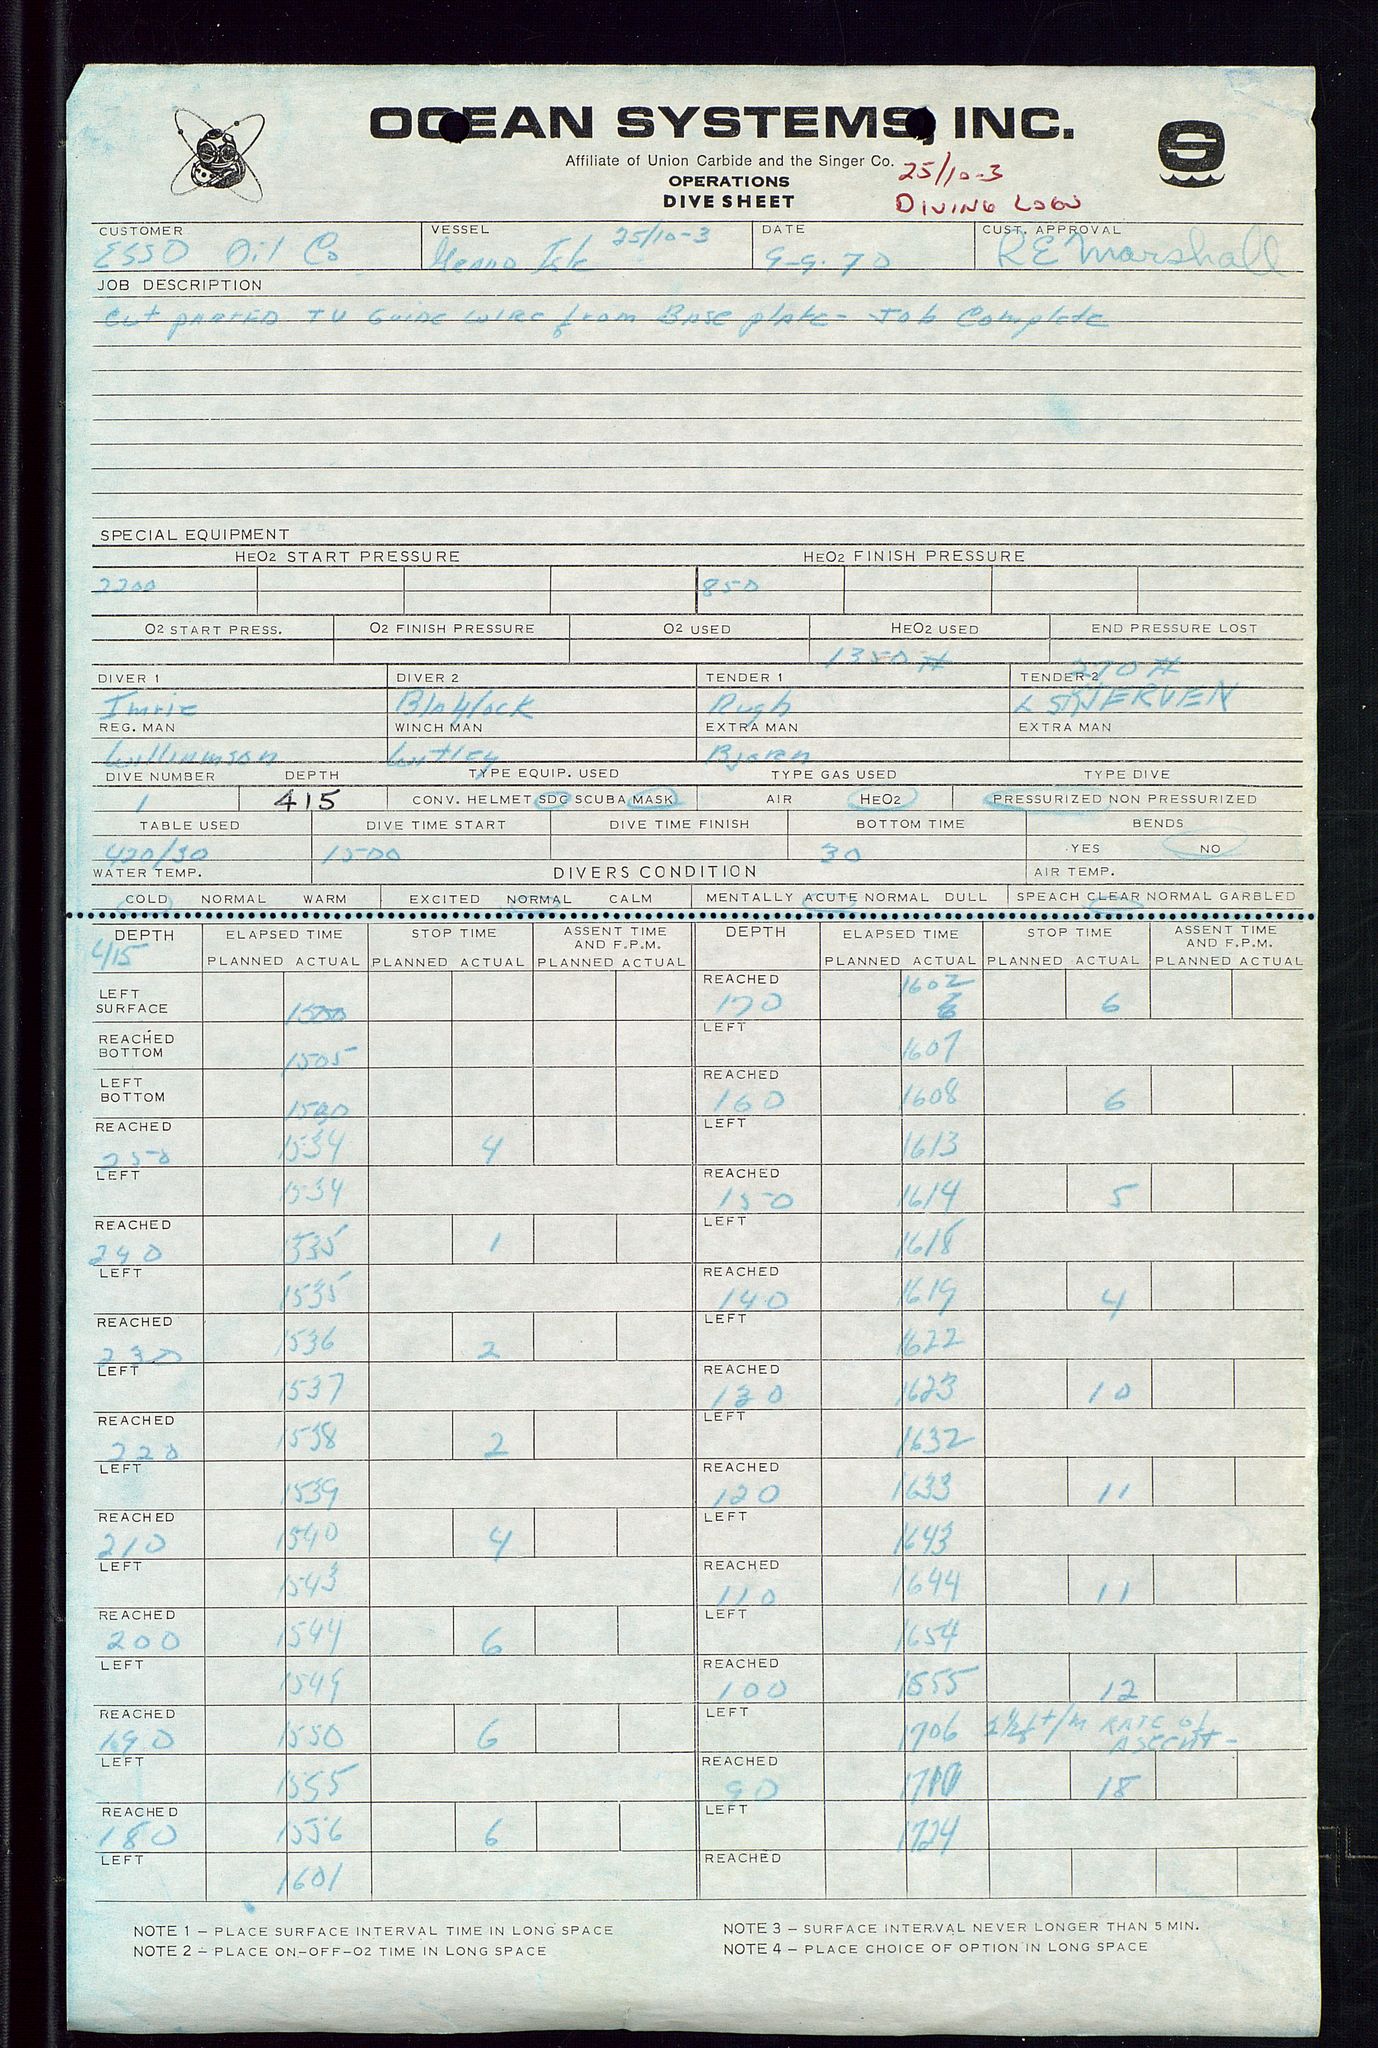 OCEAN SYSTEMS, INC.
Affiliate of Union Carbide and the Singer Co.
25/10-3
OPERATIONS
DIVE SHEET
DIVING LOGS
CUSTOMER VESSEL DATE CUST. APPROVAL
ESSO Oil Co 25/10-3 9-9-70 RE Marshall
JOB DESCRIPTION
Cut parted TV Guide wire from Base plate - Job Complete
SPECIAL EQUIPMENT
HEO2 START PRESSURE HEO2 FINISH PRESSURE
2200 850
O2 START PRESS. O2 FINISH PRESSURE O2 USED HEO2 USED END PRESSURE LOST
1350# 270#
DIVER 1 DIVER 2 TENDER 1 TENDER 2
Imrie Blaylock Pugh SKJERVEN
REG. MAN WINCH MAN EXTRA MAN EXTRA MAN
Williamson Bjoren
DIVE NUMBER DEPTH TYPE EQUIP. USED TYPE GAS USED TYPE DIVE
1 415 CONV. HELMET SDC SCUBA MASK AIR HEO2 PRESSURIZED NON PRESSURIZED
TABLE USED DIVE TIME START DIVE TIME FINISH BOTTOM TIME BENDS
420/30 1500 30 YES NO
WATER TEMP. DIVERS CONDITION AIR TEMP.
COLD NORMAL WARM EXCITED NORMAL CALM MENTALLY ACUTE NORMAL DULL SPEACH CLEAR NORMAL GARBLED
DEPTH ELAPSED TIME STOP TIME ASSENT TIME AND F.P.M.
415 PLANNED ACTUAL PLANNED ACTUAL PLANNED ACTUAL
LEFT SURFACE 1500
REACHED BOTTOM 1505
LEFT BOTTOM 1530
REACHED 250 1534 4
LEFT 1534
REACHED 240 1535 1
LEFT 1535
REACHED 230 1536 2
LEFT 1537
REACHED 220 1538 2
LEFT 1539
REACHED 210 1540 4
LEFT 1543
REACHED 200 1544 6
LEFT 1549
REACHED 190 1550 6
LEFT 1555
REACHED 180 1556 6
LEFT 1601
DEPTH ELAPSED TIME STOP TIME ASSENT TIME AND F.P.M.
PLANNED ACTUAL PLANNED ACTUAL PLANNED ACTUAL
REACHED 170 1602 6
LEFT 1607
REACHED 160 1608 6
LEFT 1613
REACHED 150 1614 5
LEFT 1618
REACHED 140 1619 4
LEFT 1622
REACHED 130 1623 10
LEFT 1632
REACHED 120 1633 11
LEFT 1643
REACHED 110 1644 11
LEFT 1654
REACHED 100 1655 12
LEFT 1706 RATE of ASCENT -
REACHED 90 18
LEFT 1724
REACHED
NOTE 1 – PLACE SURFACE INTERVAL TIME IN LONG SPACE
NOTE 2 – PLACE ON-OFF-O2 TIME IN LONG SPACE
NOTE 3 – SURFACE INTERVAL NEVER LONGER THAN 5 MIN.
NOTE 4 – PLACE CHOICE OF OPTION IN LONG SPACE